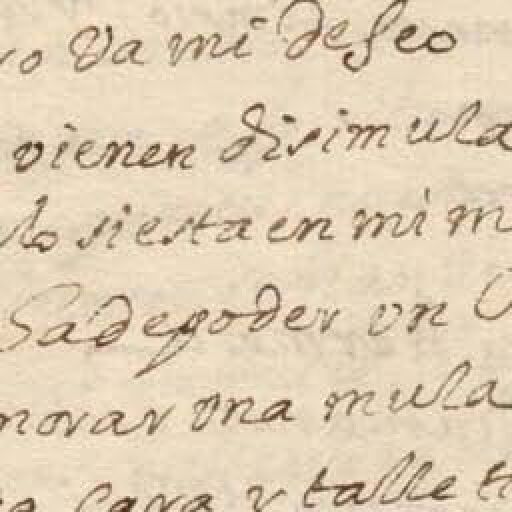 ro Va mi deseo
vienen disimula
lo siesta en mi m
Sa de poder vn
morar vna mula
cara y talle ti